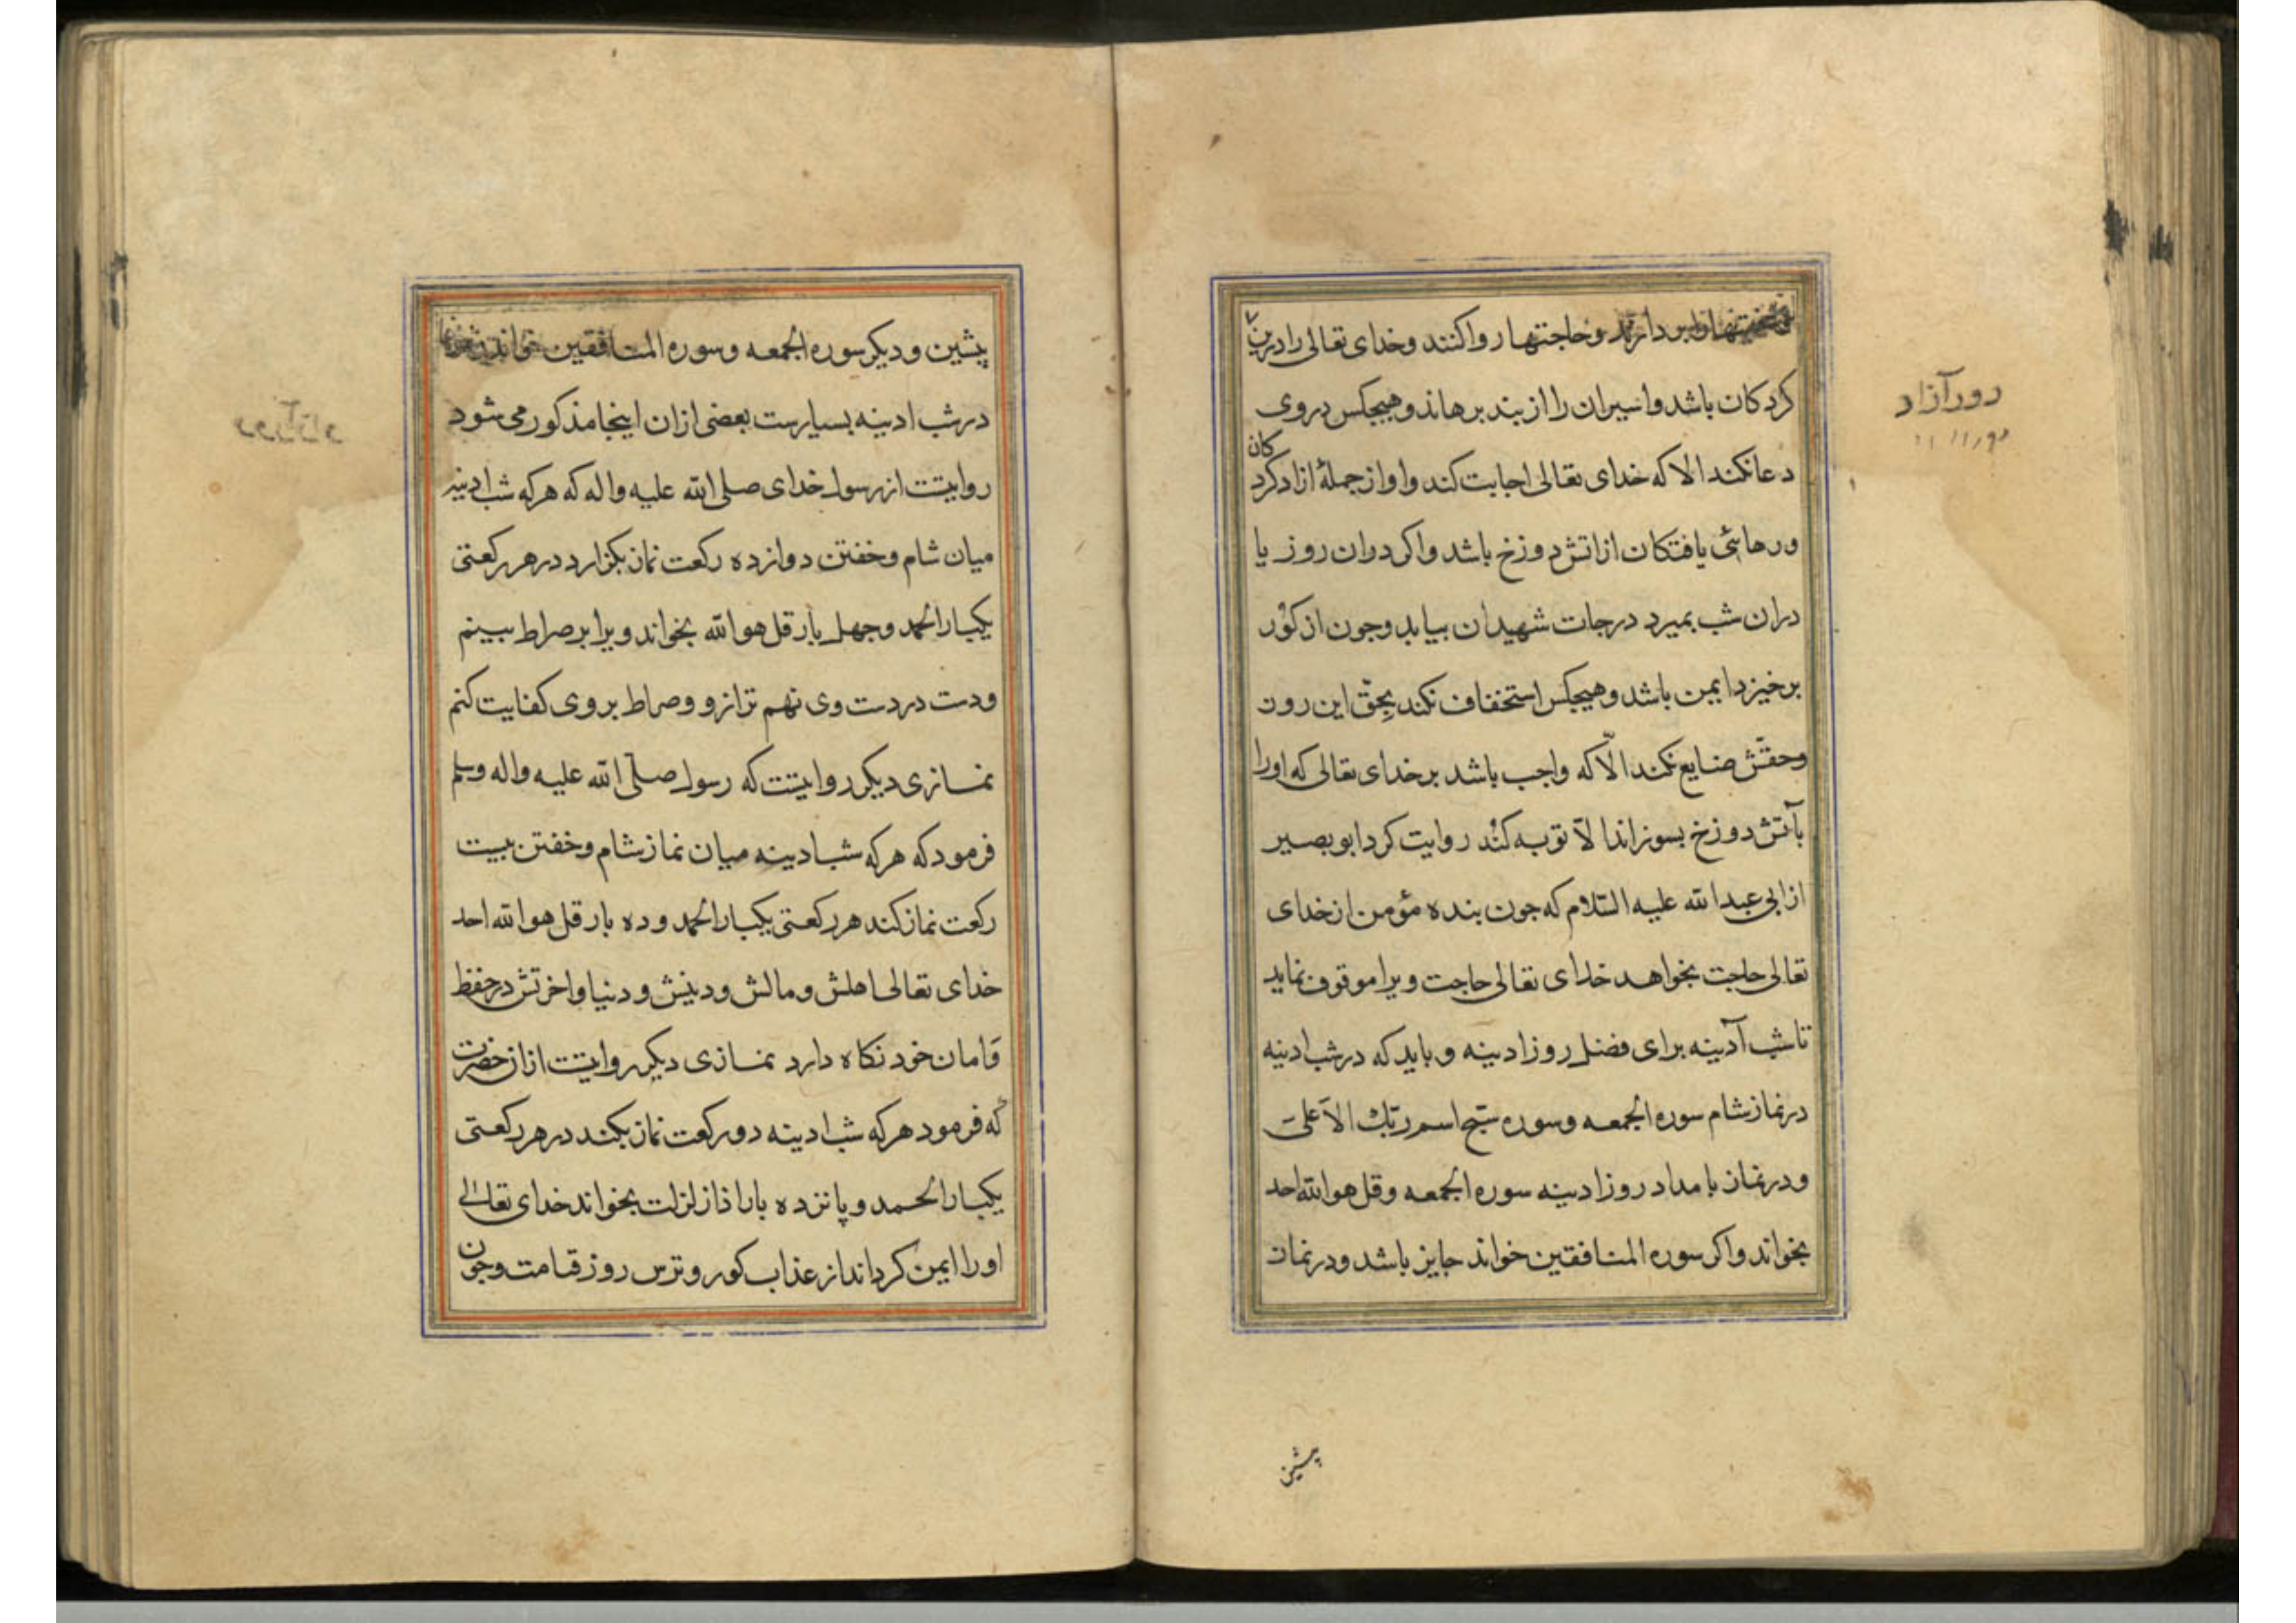 بردارند وحاجتها روا کنند وخدای تعالی را درین
کردکان باشد واسیران را از بند برهاند وهیچکس دروی
دعا نکند الا که خدای تعالی اجابت کند واو از جملهٔ ازادکرد
کان
ورهائی یافتکان از اتش دوزخ باشد واکر دران روز یا
دران شب بمیرد درجات شهیدان بیابد وجون از کور
برخیزد ایمن باشد وهیچکس استخفاف نکند بحقّ این روز
وحقّش ضایع نکند الّا که واجب باشد بر خدای تعالی که اورا
بآتش دوزخ بسوزاند الآ توبه کند روایت کرد ابو بصیر
از ابی عبدالله علیه السّلام که جون بنده مؤمن از خدای
تعالی حاجت بخواهد خدای تعالی حاجت ویرا موقوف نماید
تا شب آدینه برای فضل روز ادینه و باید که در شب ادینه
در نماز شام سوره الجمعه وسوره سبّح اسم ربّك الاَعلی
ودر نماز بامداد روز ادینه سوره الجمعه وقل هو الله احد
بخواند واکر سوره المنافقین خواند جایز باشد ودر نماز
پیشین
دور آزاد
پیشین ودیکر سوره الجمعه وسوره المنافقین خواند
در شب ادینه بسیارست بعضی ازان اینجا مذکور می شود
روایتست از رسول خدای صلی الله علیه واله که هرکه شب ادینه
میان شام وخفتن دوازده رکعت نماز بکزارد در هر رکعتی
یکبار الحمد وجهل بار قل هو الله بخواند ویرا بر صراط ببینم
ودست در دست وی نهم ترازو وصراط بروی کفایت کنم
نمازی دیکر روایتست که رسول صلّی الله علیه واله وسلم
فرمود که هرکه شب ادینه میان نماز شام وخفتن بیست
رکعت نماز کند هر رکعتی یکبار الحمد وده بار قل هو الله احد
خدای تعالی اهلش ومالش ودینش ودنیا واخرتش در حفظ
وامان خود نکاه دارد نمازی دیکر روایتست ازان حضرت
که فرمود هرکه شب ادینه دو رکعت نماز بکند در هر رکعتی
یکبار الحمد وپانزده بار اذا زلزلت بخواند خدای تعالی
اورا ایمن کرداند از عذاب کور وترس روز قیامت وجون